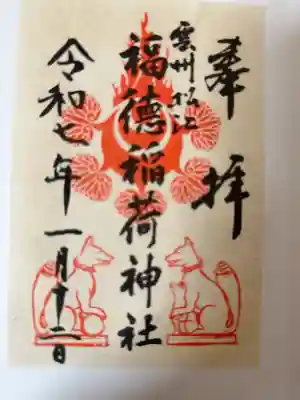 奉拝
雲州松江
福徳稲荷神社
令和七年一月十二日